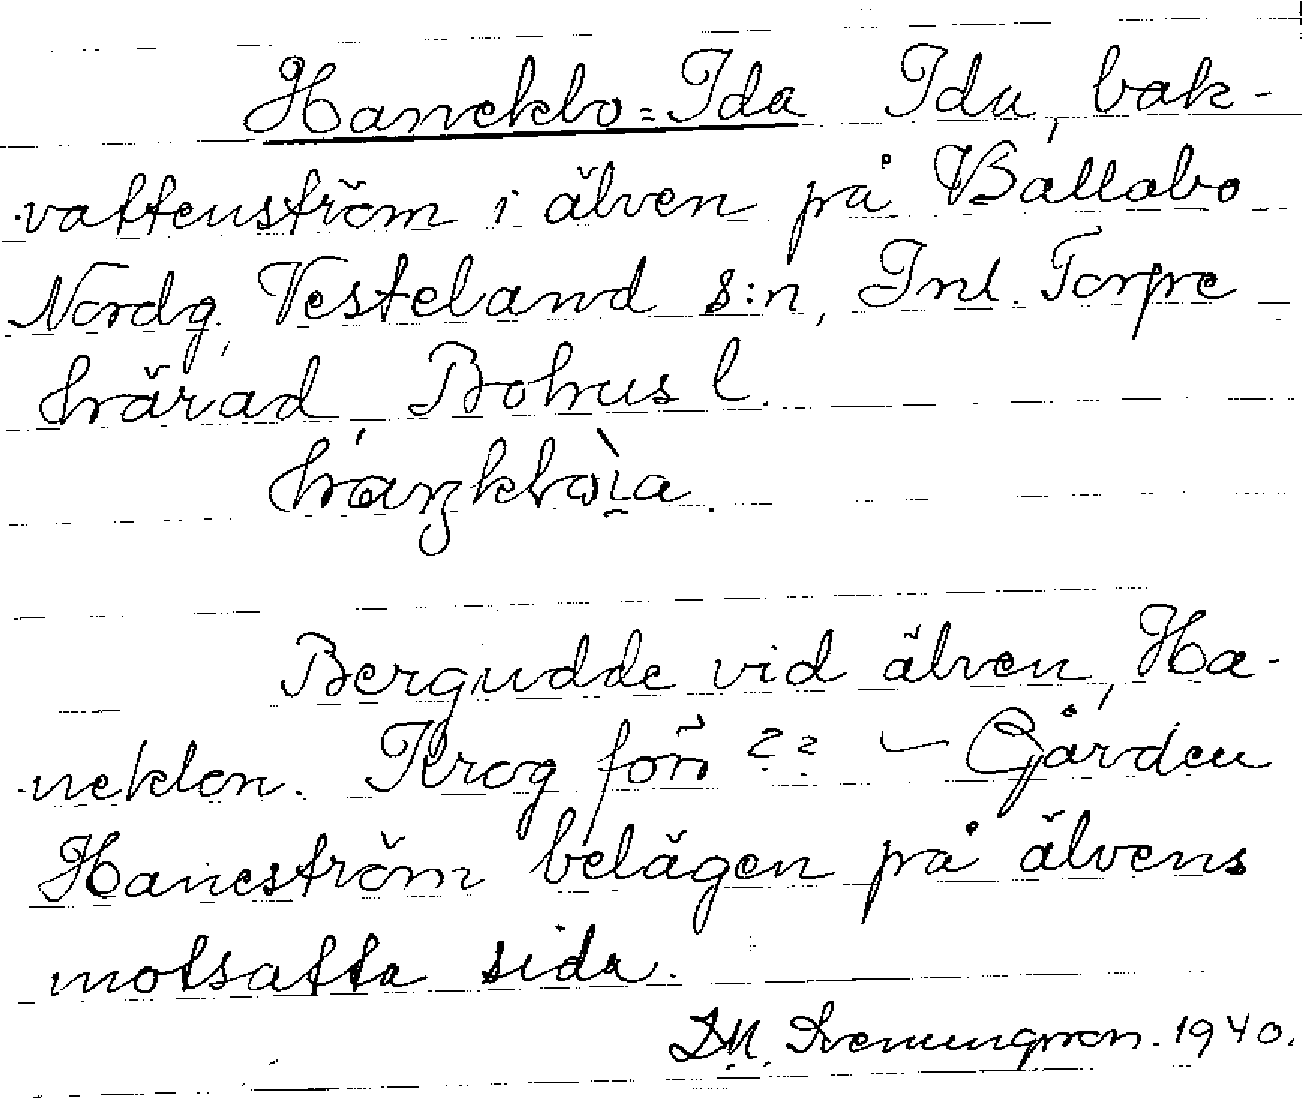 Haneklo=Ida Ida, bak-
vattenström i älven på Bållabo
Nordg, Vesteland s:n, Inl. Torpe
härad, Bohus l.
Bergudde vid älven, Ha-
neklon. Krog förr ?? – Gården
Haneström belägen på älvens
motsatta sida.
1940.